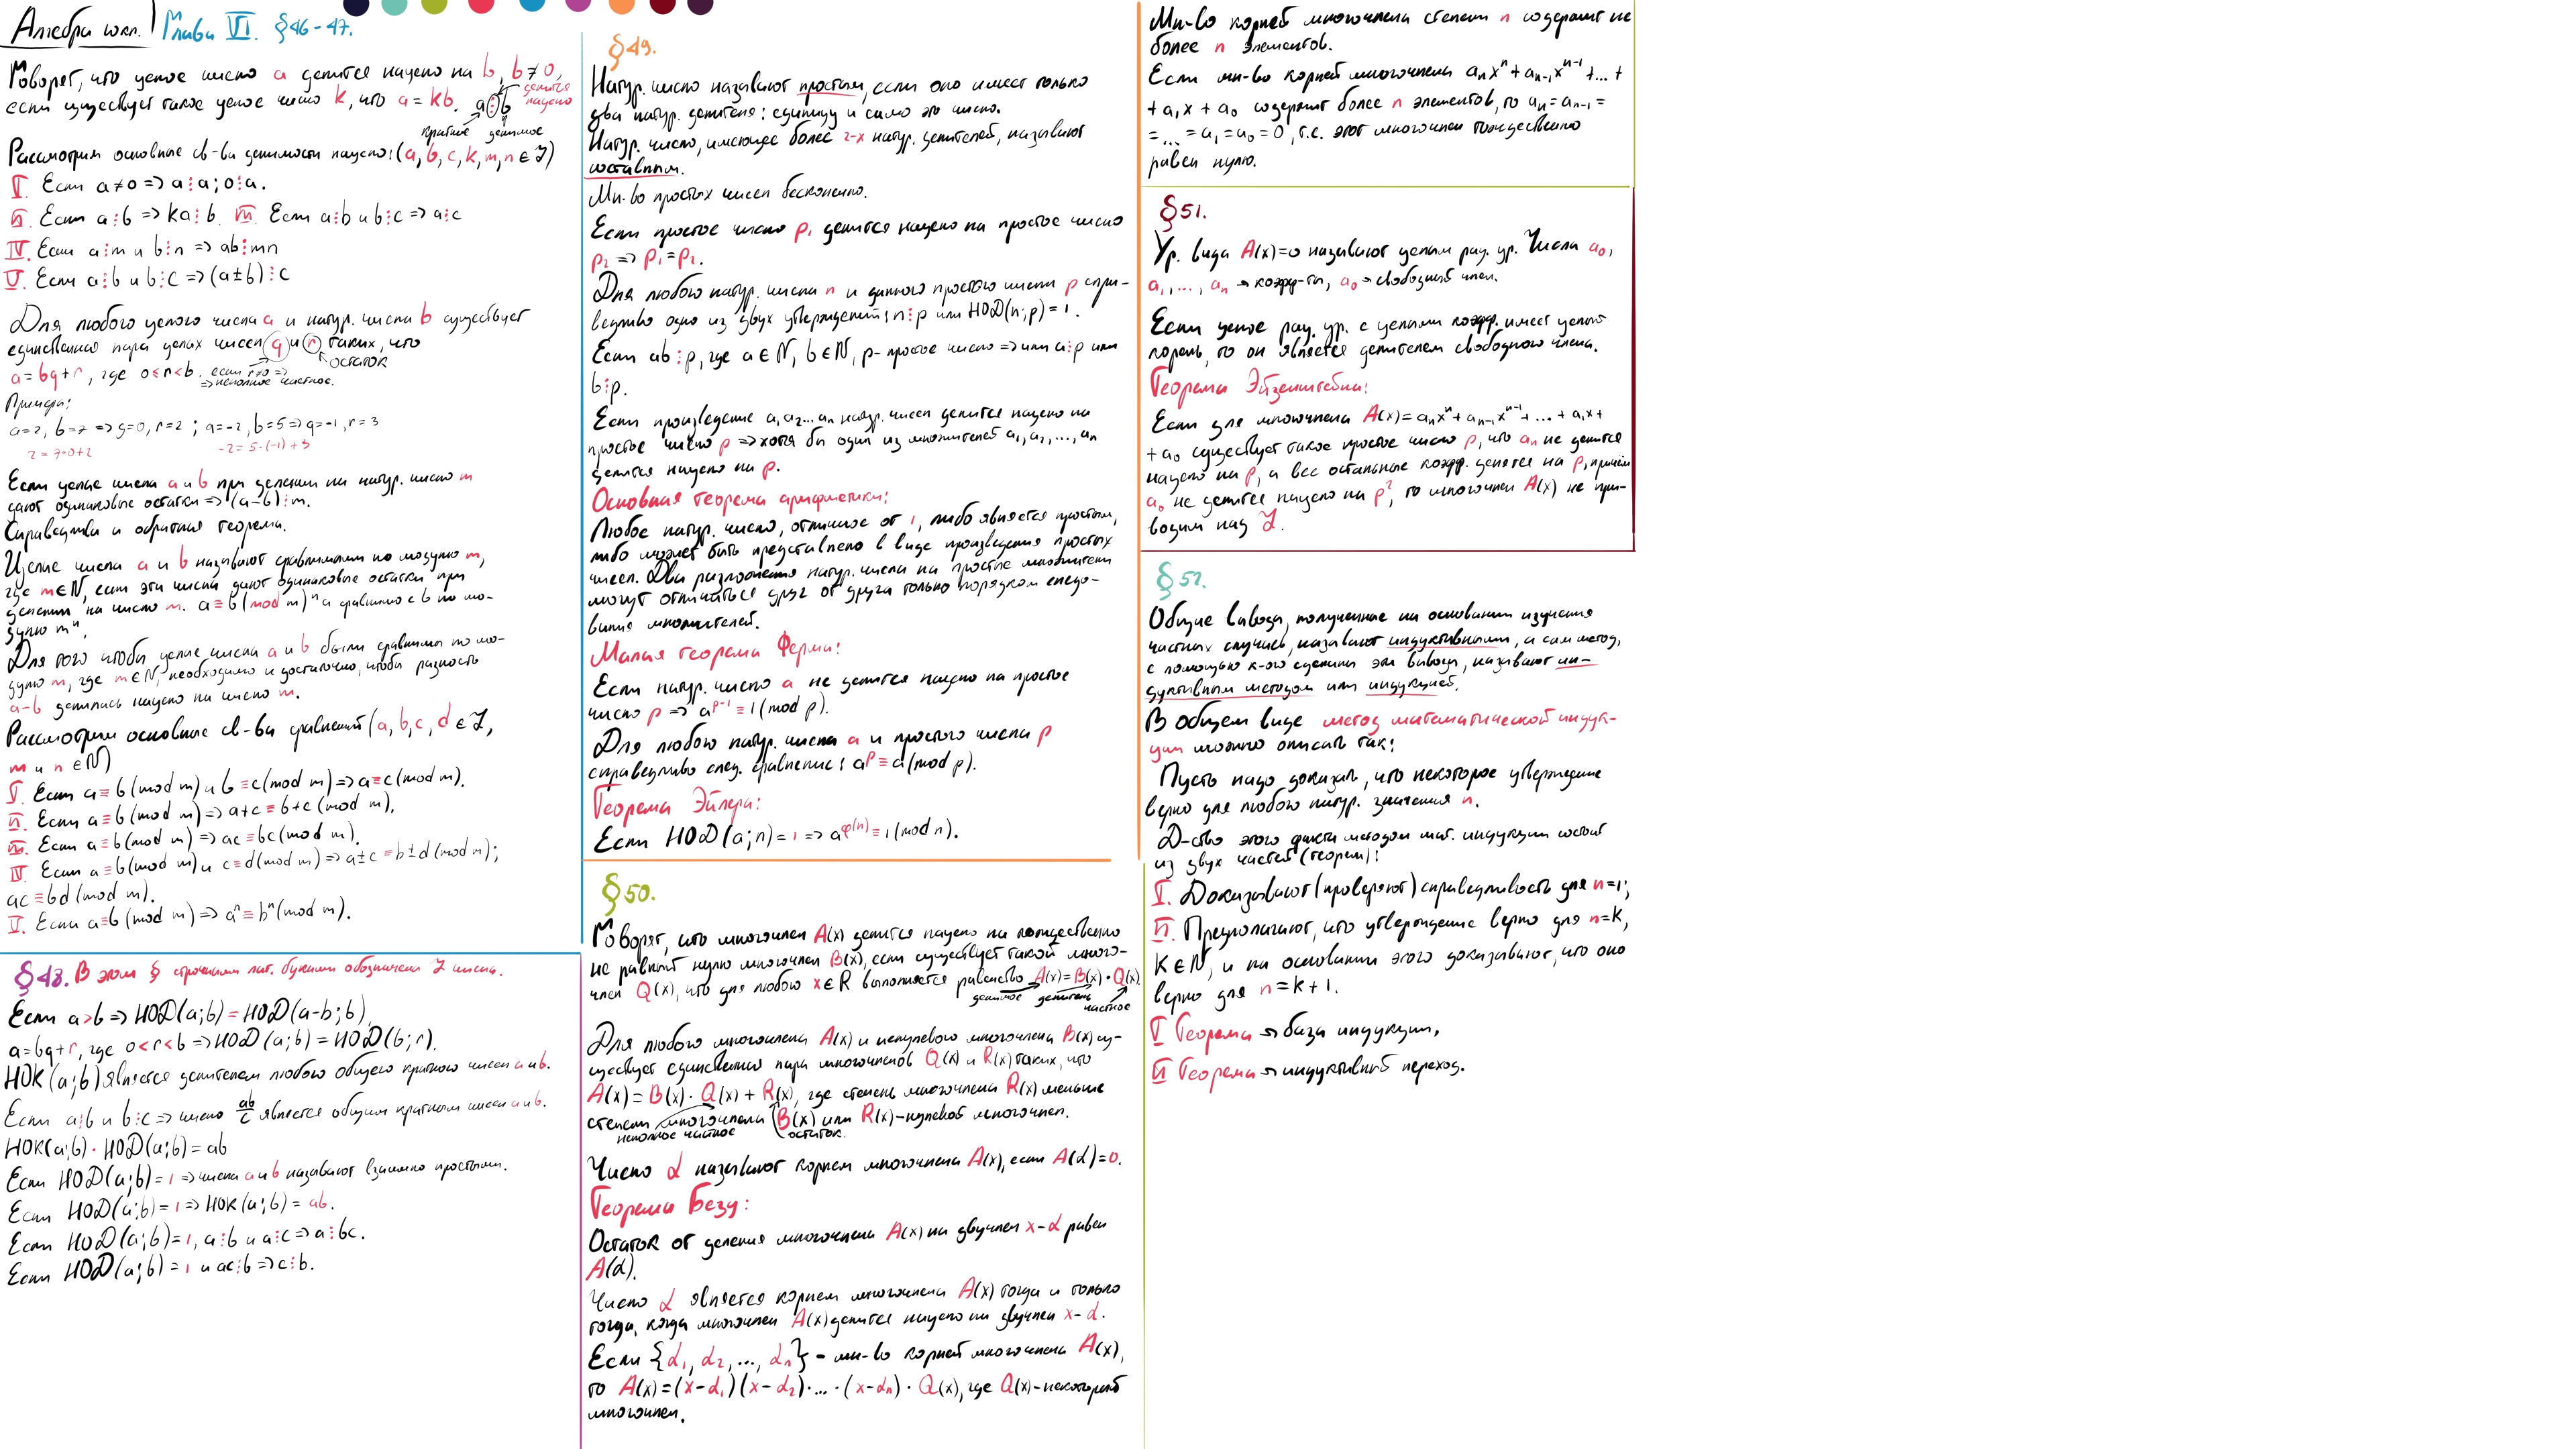 Алгебра шкл. Глава VI. §46-47.
Говорят, что целое число a делится нацело на b, b≠0,
если существует такое целое число k, что a = kb. a⋮b делится нацело
кратное делимое
Рассмотрим основные св-ва делимости нацело: (a, b, c, k, m, n ∈ Z)
I. Если a≠0 => a⋮a; 0⋮a.
II. Если a⋮b => ka⋮b. III. Если a⋮b и b⋮c => a⋮c
IV. Если a⋮m и b⋮n => ab⋮mn
V. Если a⋮b и b⋮c => (a±b)⋮c
Для любого целого числа a и натур. числа b существует
единственная пара целых чисел q и r таких, что
остаток
a = bq + r, где 0≤r<b. если r≠0 =>
=> неполное частное.
Примеры:
a=2, b=7 => q=0, r=2 ; a=-2, b=5 => q=-1, r=3
2 = 7·0+2 -2 = 5·(-1)+3
Если целые числа a и b при делении на натур. число m
дают одинаковые остатки => (a-b)⋮m.
Справедлива и обратная теорема.
Целые числа a и b называют сравнимыми по модулю m,
где m∈N, если эти числа дают одинаковые остатки при
делении на число m. a ≡ b (mod m) "a сравнимо с b по мо-
дулю m".
Для того чтобы целые числа a и b были сравнимы по мо-
дулю m, где m∈N, необходимо и достаточно, чтобы разность
a-b делилась нацело на число m.
Рассмотрим основные св-ва сравнений (a, b, c, d ∈ Z,
m и n ∈ N)
I. Если a ≡ b (mod m) и b ≡ c (mod m) => a ≡ c (mod m).
II. Если a ≡ b (mod m) => a+c ≡ b+c (mod m).
III. Если a ≡ b (mod m) => ac ≡ bc (mod m).
IV. Если a ≡ b (mod m) и c ≡ d (mod m) => a±c ≡ b±d (mod m);
ac ≡ bd (mod m).
V. Если a ≡ b (mod m) => aⁿ ≡ bⁿ (mod m).
§48. В этом § строчными лат. буквами обозначены Z числа.
Если a>b => НОД(a;b) = НОД(a-b;b)
a = bq + r, где 0<r<b => НОД(a;b) = НОД(b;r).
НОК(a;b) является делителем любого общего кратного чисел a и b.
Если a⋮b и b⋮c => число ab/c является общим кратным чисел a и b.
НОК(a;b) · НОД(a;b) = ab
Если НОД(a;b) = 1 => числа a и b называют взаимно простыми.
Если НОД(a;b) = 1 => НОК(a;b) = ab.
Если НОД(a;b) = 1, a⋮b и a⋮c => a⋮bc.
Если НОД(a;b) = 1 и ac⋮b => c⋮b.
§49.
Натур. число называют простым, если оно имеет только
два натур. делителя: единицу и само это число.
Натур. число, имеющее более 2-х натур. делителей, называют
составным.
Мн-во простых чисел бесконечно.
Если простое число p₁ делится нацело на простое число
p₂ => p₁ = p₂.
Для любого натур. числа n и данного простого числа p спра-
ведливо одно из двух утверждений: n⋮p или НОД(n;p) = 1.
Если ab⋮p, где a∈N, b∈N, p - простое число => или a⋮p или
b⋮p.
Если произведение a₁a₂...aₙ натур. чисел делится нацело на
простое число p => хотя бы один из множителей a₁, a₂, ..., aₙ
делится нацело на p.
Основная теорема арифметики:
Любое натур. число, отличное от 1, либо является простым,
либо может быть представлено в виде произведения простых
чисел. Два разложения натур. числа на простые множители
могут отличаться друг от друга только порядком следо-
вания множителей.
Малая теорема Ферма:
Если натур. число a не делится нацело на простое
число p => aᵖ⁻¹ ≡ 1 (mod p).
Для любого натур. числа a и простого числа p
справедливо след. сравнение: aᵖ ≡ a (mod p).
Теорема Эйлера:
Если НОД(a;n) = 1 => a^φ(n) ≡ 1 (mod n).
§50.
Говорят, что многочлен A(x) делится нацело на тождественно
не равный нулю многочлен B(x), если существует такой много-
член Q(x), что для любого x∈R выполняется равенство A(x) = B(x)·Q(x)
делимое делитель частное
Для любого многочлена A(x) и ненулевого многочлена B(x) су-
ществует единственная пара многочленов Q(x) и R(x) таких, что
A(x) = B(x) · Q(x) + R(x), где степень многочлена R(x) меньше
степени многочлена B(x) или R(x) - нулевой многочлен.
неполное частное остаток.
Число α называют корнем многочлена A(x), если A(α)=0.
Теорема Безу:
Остаток от деления многочлена A(x) на двучлен x-α равен
A(α).
Число α является корнем многочлена A(x) тогда и только
тогда, когда многочлен A(x) делится нацело на двучлен x-α.
Если {α₁, α₂, ..., αₙ} - мн-во корней многочлена A(x),
то A(x) = (x-α₁)(x-α₂)·...·(x-αₙ) · Q(x), где Q(x) - некоторый
многочлен.
Мн-во корней многочлена степени n содержит не
более n элементов.
Если мн-во корней многочлена aₙxⁿ + aₙ₋₁xⁿ⁻¹ + ... +
+ a₁x + a₀ содержит более n элементов, то aₙ = aₙ₋₁ =
= ... = a₁ = a₀ = 0, т.е. этот многочлен тождественно
равен нулю.
§51.
Ур. вида A(x)=0 называют целым рац. ур. Числа a₀,
a₁, ..., aₙ → коэфф-ты, a₀ → свободный член.
Если целое рац. ур. с целыми коэфф. имеет целый
корень, то он является делителем свободного члена.
Теорема Эйзенштейна:
Если для многочлена A(x) = aₙxⁿ + aₙ₋₁xⁿ⁻¹ + ... + a₁x +
+ a₀ существует такое простое число p, что aₙ не делится
нацело на p, а все остальные коэфф. делятся на p, причём
a₀ не делится нацело на p², то многочлен A(x) не при-
водим над Z.
§52.
Общие выводы, полученные на основании изучения
частных случаев, называют индуктивными, а сам метод,
с помощью к-ого сделаны эти выводы, называют ин-
дуктивным методом или индукцией.
В общем виде метод математической индук-
ции можно описать так:
Пусть надо доказать, что некоторое утверждение
верно для любого натур. значения n.
Д-ство этого факта методом мат. индукции состоит
из двух частей (теорем):
I. Доказывают (проверяют) справедливость для n=1;
II. Предполагают, что утверждение верно для n=k,
k∈N, и на основании этого доказывают, что оно
верно для n = k+1.
I Теорема → база индукции,
II Теорема → индуктивный переход.